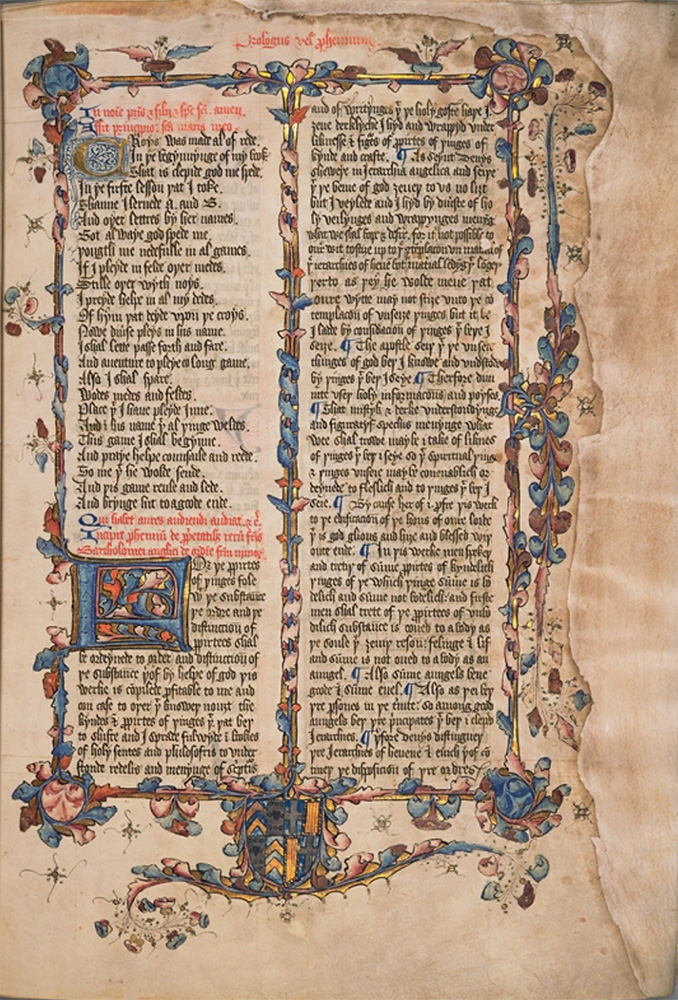 Prologus vel prohemium
In noīe pr̄is & filii & sp̄c sc̄i. amen.
Assit principio: sc̄a maria meo.
Croys was made al of rede.
In þe begynnynge of my book
That is cleped god me spede.
In þe firste lesson þat I toke.
Thanne I lernede A. and B.
And oþer lettres by her names.
Bot alwaye god spede me.
þougth me nedefulle in al games.
If I pleyde in felde oþer medes.
Stille oþer wyth noys.
I preyde helpe in al my dedes.
Of hym þat deyde vpon þe croys.
Nowe diūse pleys in his name.
I shal lette passe forth and fare.
And auenture to pleye o long game.
Also I shal spare.
Wodes medes and feldes.
Place þt I haue pleyde Inne.
And ī his name þt al þinge weldes.
This game I shal begynne.
And praye helpe counsaile and rede.
To me þt he wolde sende.
And þis game reule and lede.
And brynge hit to a gode ende.
Qui habet aures audiendi audiat. & c̄.
Incipit prohemiū de p̄prietatibz rerū fr̄is
Bartholomei anglici de ordīe frm̄ minor
For þe p̄pirtes
of þinges folewþ
þe substance
þe ordre and þe
distinctioū of
p̄pirtees shal
be ordeynede to order and distinctioū of
þe substance þof by helpe of god þis
werke is cōpilede profitable to me and
on case to oþer þt knowen nouȝt the
kyndes & p̄pirtes of þinges þt þat bey
to shifte and I sprede ful wyde ī bokes
of holy seintes and philosofris to vnder
stonde redelis and menynge of scptīs
and of writynges þt þe holy goste haþe I
ȝeue derklyche I hyd and wrappyd vnder
liknesse & figēs of p̄pirtes of þinges of
kynde and crafte. ¶ As Seynt Denys
sheweþe in Ierarchia angelica and seiþe
þt þe beme of god ȝeueþ to vs no liȝt
but I veylede and I hyd by diuiste of ho
ly veilynges and wrappynges menynge
what we shal hope & desire. for it is not possible to
oure wit to stiȝe up to þe ... of
þe ierarchies of heuē but matial ledyge
þerto as þey he wolde mene þat
oure wytte may not stiȝe vnto þe cō
templacoū of vnseiȝe þinges but it be
I lade by consideracoū of þinges þt beþ I
seye. ¶ The apostle seiþ þt þe vnseiȝe
thinges of god beþ I knowe and vndstōde
by þinges þt beþ I seye. ¶ Therfore diui
nite vseþ holy informacoūs and poyses.
¶ That mystik & derke vnderstondynge
and figuratyf speche menynge what
wee shal trowe maybe ī take of liknes
of þinges þt beþ ī seye so þt spiritual þings
& þinges vnseie maybe couenablich or
deynede to fleslich and to þinges þt beþ I
seie. ¶ By cause her of ī p̄fre þis werk
to þe edificacoū of þe hous of oure lorde
þt is god glorious and hiȝe and blessed wiþ
oute ende. ¶ In þis werke men spekeþ
and tretþ of sūme p̄pirtes of kyndelich
þinges of þe which þinge sūme is bo
delich and sūme not bodelich: and firste
men shal trete of þe p̄pirtees of vnbo
dilich substauce is oned to a body as
þe soule þt ȝeuyþ resoū: felinge & lif
and sūme is not oned to a body as an
aungel. ¶ Also sūme aungels bene
gode & sūme euel. ¶ Also as þei beþ
þre p̄sones in þe t'nite: so among good
aungels beþ þre pricipates þt beþ ī clepid
Ierarchies. ¶ þ'fore denys distingueþ
þre Ierarchies of heuene & eūch þof cō
tineþ þe disposicoū of þre ordres